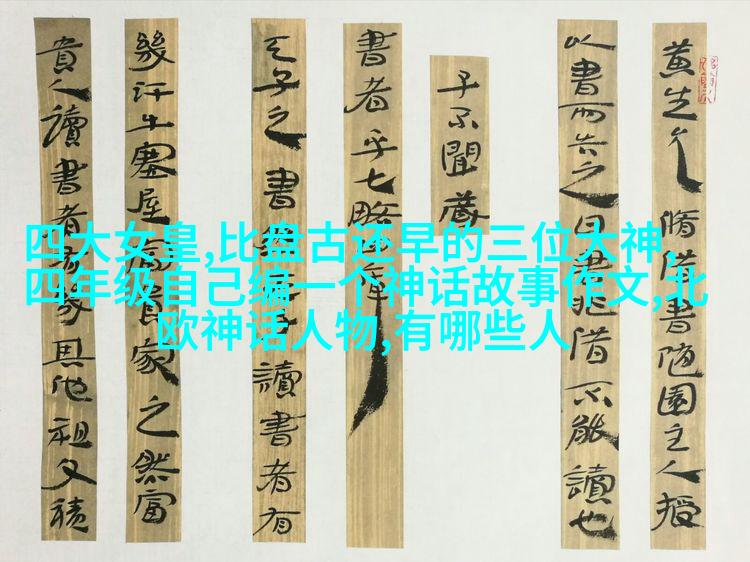 黃生允脩借書随園主人授
以書而告之曰書非借不能讀也
子不聞藏
書者乎七略
天子之書讀書者有
幾汗牛塞屋富貴家之然富
貴人讀書者其他祖父積
四大女皇,比盘古还早的三位大神,
四年级自己编一个神话故事作文,北
欧神话人物,有哪些人